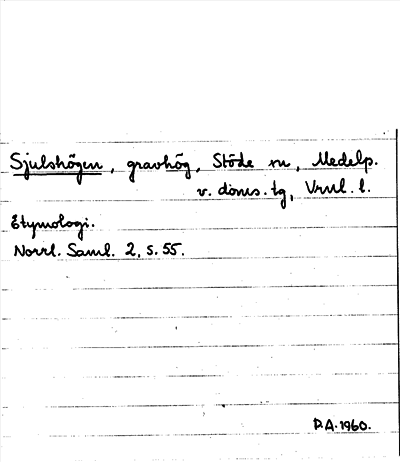 Sjulshögen, gravhög, Stöde sn, Medelp.
v. doms. tg, Vnl. l.
Etymologi.
Norrl. Saml. 2, s. 55.
P.A. 1960.